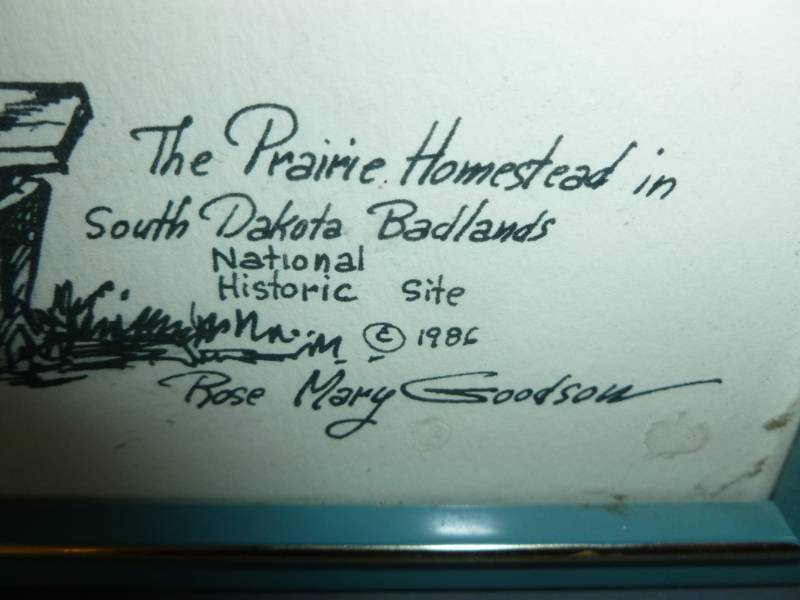 The Prairie Homestead in
South Dakota Badlands
National
Historic Site
© 1986
Rose Mary Goodson